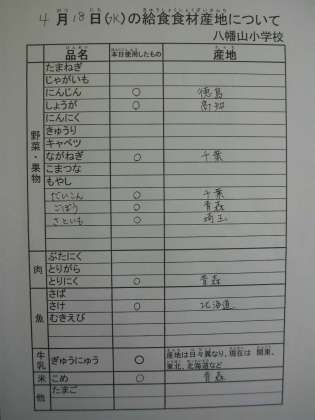 4月18日(水)の給食食材産地について
八幡山小学校
品名 本日使用したもの 産地
野菜・果物
たまねぎ
じゃがいも
にんじん ○ 徳島
しょうが ○ 高知
にんにく
きゅうり
キャベツ
ながねぎ ○ 千葉
こまつな
もやし
だいこん ○ 千葉
ごぼう ○ 青森
さといも ○ 埼玉
肉
ぶたにく
とりがら
とりにく ○ 青森
魚
さば
さけ ○ 北海道
むきえび
牛乳 ぎゅうにゅう ○ 産地は日々異なり、現在は 関東、
東北、北海道など
米 こめ ○ 青森
他 たまご